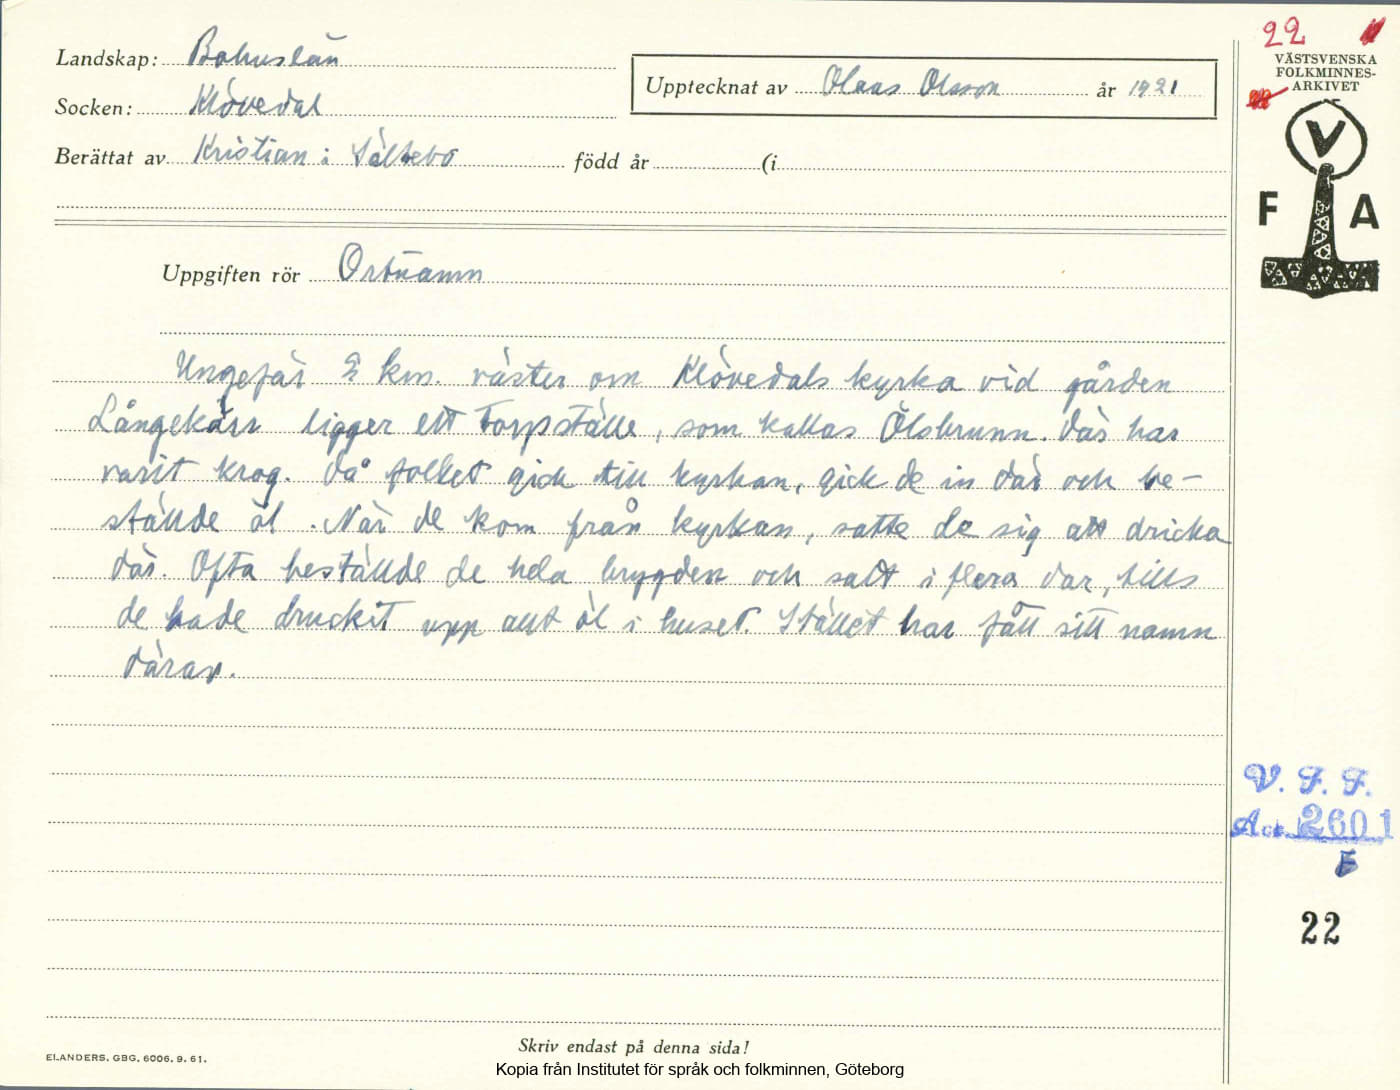 22
VÄSTSVENSKA
FOLKMINNES-
ARKIVET
V
F A
Landskap: Bohuslän
Socken: Klövedal
Upptecknat av Olaas Olsson år 1921
Berättat av Kristian i Sältebo född år (i
Uppgiften rör Ortnamn
Ungefär 2 km. väster om Klövedals kyrka vid gården
Långekärr ligger ett torpställe, som kallas Ölsbrunn. Där har
varit krog. Då folket gick till kyrkan, gick de in där och be-
ställde öl. När de kom från kyrkan, satte de sig att dricka
där. Ofta beställde de hela brygden och satt i flera dar, tills
de hade druckit upp allt öl i huset. Stället har fått sitt namn
därav.
V. F. F.
Acc. 2601
E
22
Skriv endast på denna sida!
ELANDERS. GBG. 6006. 9. 61.
Kopia från Institutet för språk och folkminnen, Göteborg